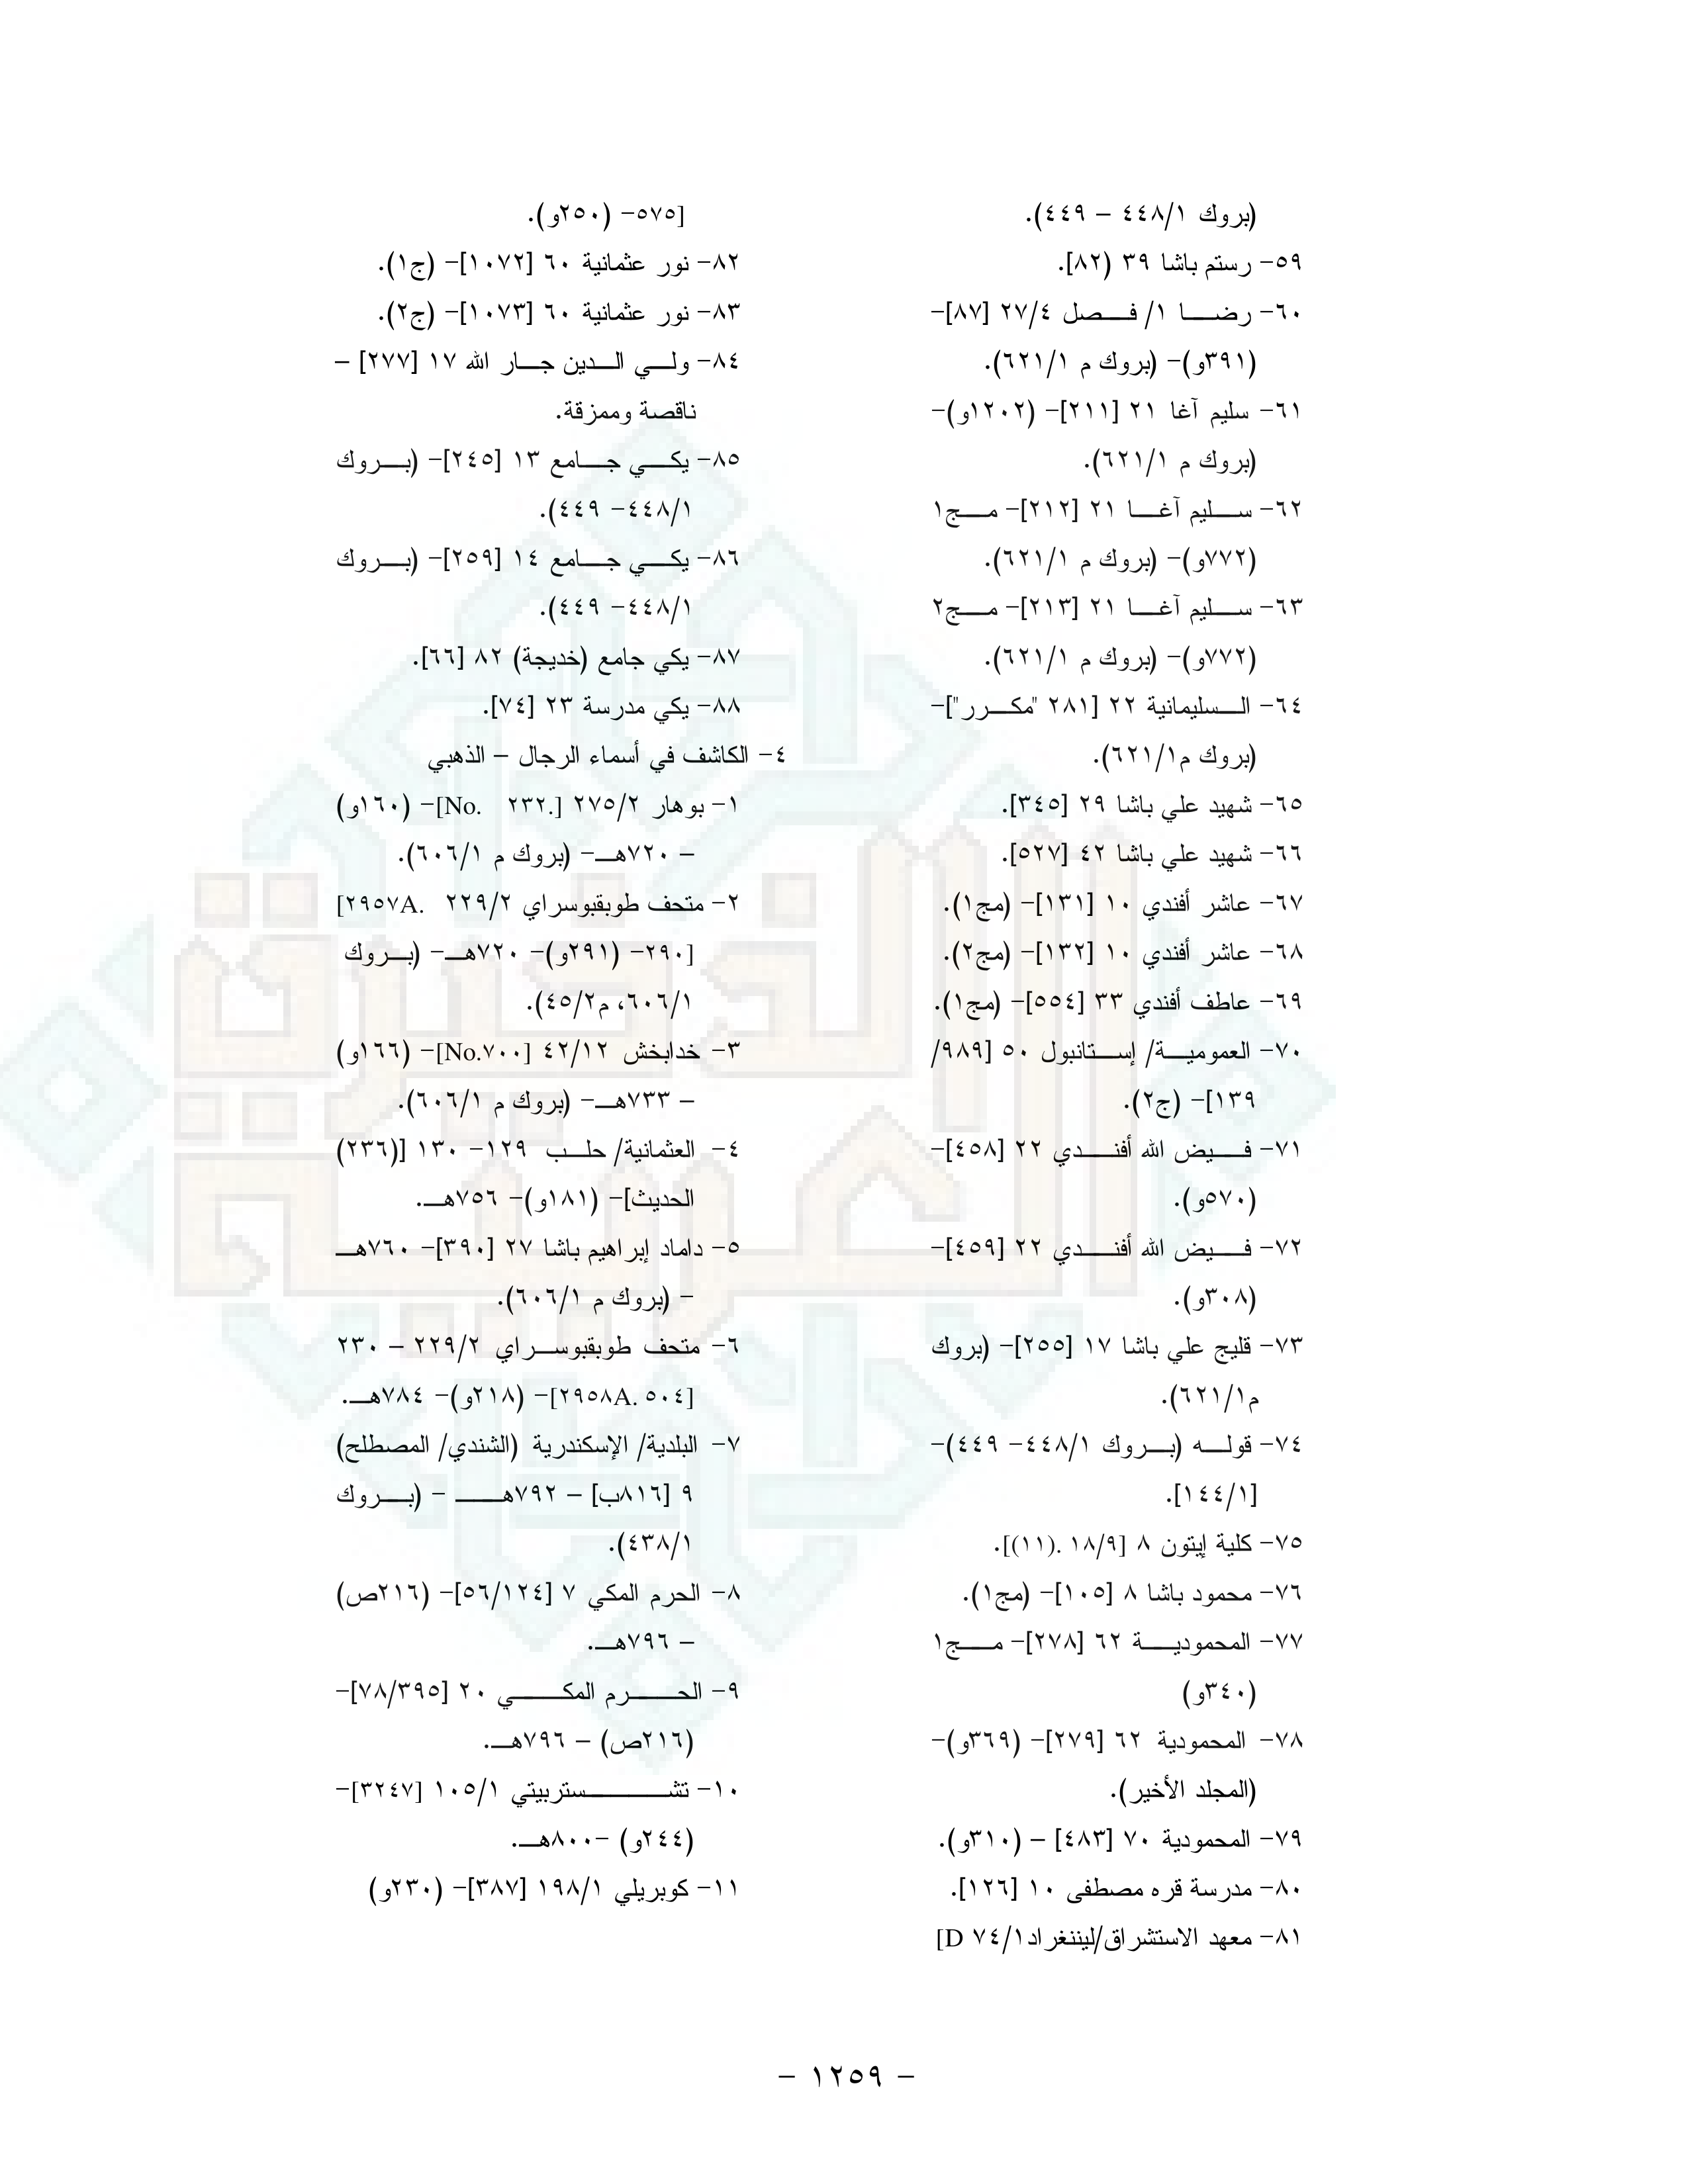 (بروك ٤٤٨/١ – ٤٤٩).
٥٩- رستم باشا ٣٩ (٨٢].
٦٠- رضا ١/ فصل ٢٧/٤ [٨٧]-
(٣٩١و)- (بروك م ٦٢١/١).
٦١- سليم آغا ٢١ [٢١١]- (١٢٠٢و)-
(بروك م ٦٢١/١).
٦٢- سليم آغا ٢١ [٢١٢]- مج١
(٧٧٢و)- (بروك م ٦٢١/١).
٦٣- سليم آغا ٢١ [٢١٣]- مج٢
(٧٧٢و)- (بروك م ٦٢١/١).
٦٤- السليمانية ٢٢ [٢٨١ "مكرر"]-
(بروك م٦٢١/١).
٦٥- شهيد علي باشا ٢٩ [٣٤٥].
٦٦- شهيد علي باشا ٤٢ [٥٢٧].
٦٧- عاشر أفندي ١٠ [١٣١]- (مج١).
٦٨- عاشر أفندي ١٠ [١٣٢]- (مج٢).
٦٩- عاطف أفندي ٣٣ [٥٥٤]- (مج١).
٧٠- العمومية/ إستانبول ٥٠ [٩٨٩/
١٣٩]- (ج٢).
٧١- فيض الله أفندي ٢٢ [٤٥٨]-
(٥٧٠و).
٧٢- فيض الله أفندي ٢٢ [٤٥٩]-
(٣٠٨و).
٧٣- قليج علي باشا ١٧ [٢٥٥]- (بروك
م٦٢١/١).
٧٤- قوله (بروك ٤٤٨/١- ٤٤٩)-
[١٤٤/١].
٧٥- كلية إيتون ٨ [١٨/٩ .(١١)].
٧٦- محمود باشا ٨ [١٠٥]- (مج١).
٧٧- المحمودية ٦٢ [٢٧٨]- مج١
(٣٤٠و)
٧٨- المحمودية ٦٢ [٢٧٩]- (٣٦٩و)-
(المجلد الأخير).
٧٩- المحمودية ٧٠ [٤٨٣] – (٣١٠و).
٨٠- مدرسة قره مصطفى ١٠ [١٢٦].
٨١- معهد الاستشراق/ليننغراد٧٤/١ D]
[٥٧٥- (٢٥٠و).
٨٢- نور عثمانية ٦٠ [١٠٧٢]- (ج١).
٨٣- نور عثمانية ٦٠ [١٠٧٣]- (ج٢).
٨٤- ولي الدين جار الله ١٧ [٢٧٧] –
ناقصة وممزقة.
٨٥- يكي جامع ١٣ [٢٤٥]- (بروك
٤٤٨/١- ٤٤٩).
٨٦- يكي جامع ١٤ [٢٥٩]- (بروك
٤٤٨/١- ٤٤٩).
٨٧- يكي جامع (خديجة) ٨٢ [٦٦].
٨٨- يكي مدرسة ٢٣ [٧٤].
٤- الكاشف في أسماء الرجال – الذهبي
١- بوهار ٢٧٥/٢ [No. ٢٣٢.]- (١٦٠و)
– ٧٢٠هـ- (بروك م ٦٠٦/١).
٢- متحف طوبقبوسراي ٢٢٩/٢ ٢٩٥٧A.]
[٢٩٠- (٢٩١و)- ٧٢٠هـ- (بروك
٦٠٦/١، م٤٥/٢).
٣- خدابخش ٤٢/١٢ [No.٧٠٠]- (١٦٦و)
– ٧٣٣هـ- (بروك م ٦٠٦/١).
٤- العثمانية/ حلب ١٢٩- ١٣٠ [(٢٣٦)
الحديث]- (١٨١و)- ٧٥٦هـ.
٥- داماد إبراهيم باشا ٢٧ [٣٩٠]- ٧٦٠هـ
- (بروك م ٦٠٦/١).
٦- متحف طوبقبوسراي ٢٢٩/٢ – ٢٣٠
[٢٩٥٨A. ٥٠٤]- (٢١٨و)- ٧٨٤هـ.
٧- البلدية/ الإسكندرية (الشندي/ المصطلح)
٩ [٨١٦ب] – ٧٩٢هـ - (بروك
٤٣٨/١).
٨- الحرم المكي ٧ [٥٦/١٢٤]- (٢١٦ص)
– ٧٩٦هـ.
٩- الحرم المكي ٢٠ [٧٨/٣٩٥]-
(٢١٦ص) – ٧٩٦هـ.
١٠- تشستربيتي ١٠٥/١ [٣٢٤٧]-
(٢٤٤و) -٨٠٠هـ.
١١- كوبريلي ١٩٨/١ [٣٨٧]- (٢٣٠و)
- ١٢٥٩ -